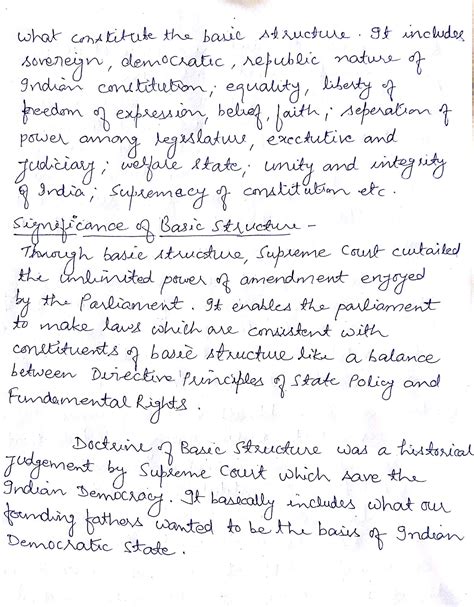 what constitute the basic structure. It includes
sovereign, democratic, republic nature of
Indian constitution; equality, liberty of
freedom of expression, belief, faith; seperation of
power among legeslature, exectutive and
Judiciary; welfare state; unity and integrity
of India; Supremacy of constitution etc.
Significance of Basic Structure -
Through basic structure, Supreme Court curtailed
the unlimited power of amendment enjoyed
by the Parliament. It enables the parliament
to make laws which are consistent with
constituents of basic structure like a balance
between Directive Principles of State Policy and
Fundamental Rights.
Doctrine of Basic Structure was a historical
judgement by Supreme Court which save the
Indian Democracy. It basically includes what our
founding fathers wanted to be the basis of Indian
Democratic State.